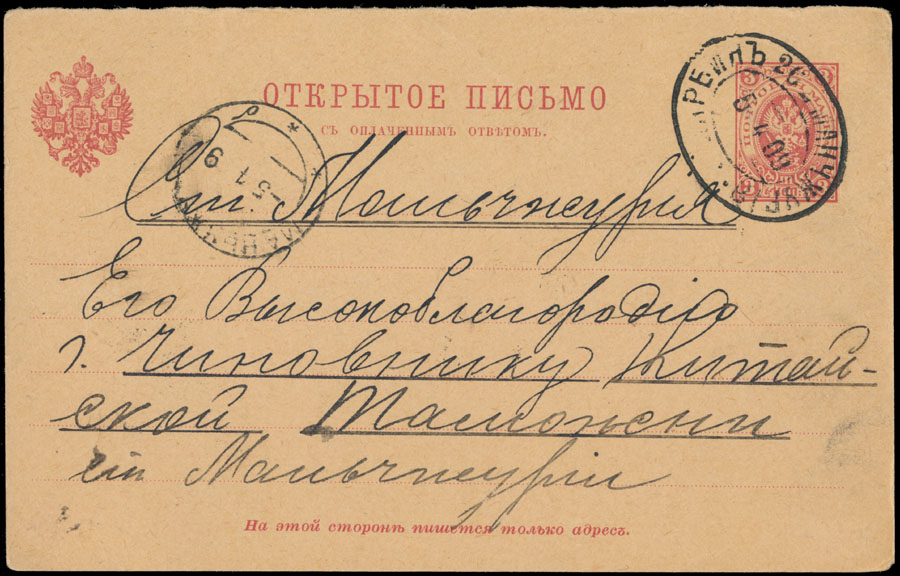 ОТКРЫТОЕ ПИСЬМО
СЪ ОПЛАЧЕННЫМЪ ОТВѢТОМЪ.
Ст. Маньчжурия
Его Высокоблагородію
г. Чиновнику Китай-
ской Таможни
ст Маньчжуріи
На этой сторонѣ пишется только адресъ.